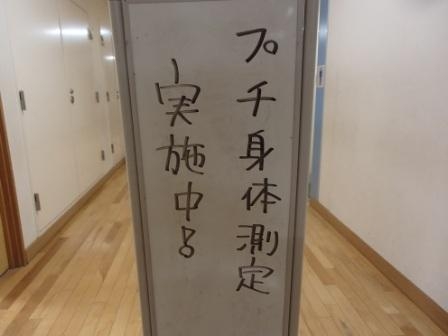 プチ身体測定
実施中!